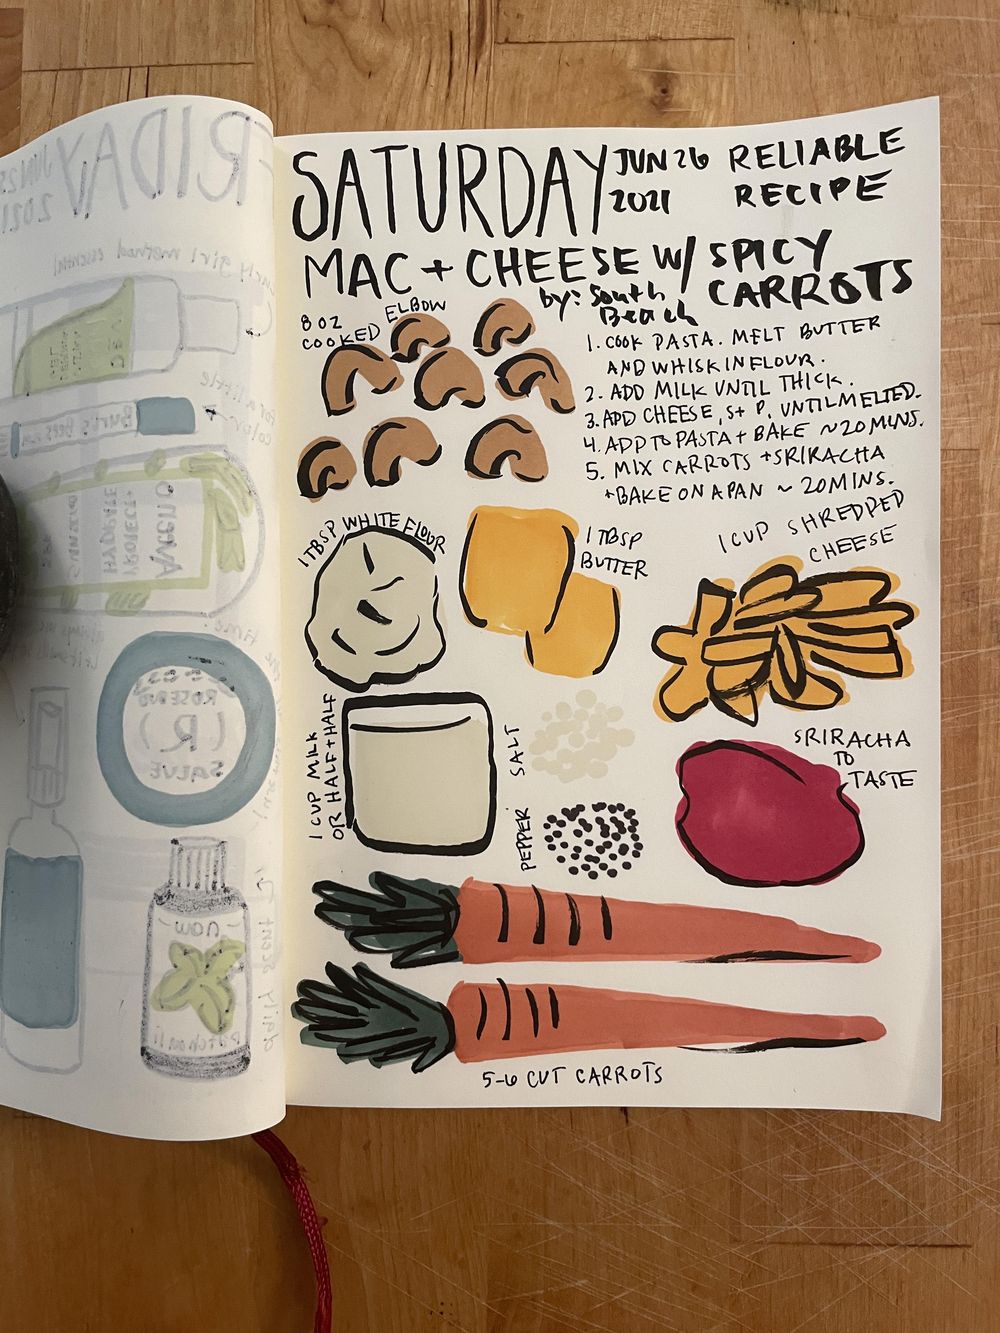 SATURDAY JUN 26 2021
RELIABLE RECIPE
MAC + CHEESE W/ SPICY CARROTS
by: South Beach
8 OZ COOKED ELBOW
1. COOK PASTA. MELT BUTTER
AND WHISK IN FLOUR.
2. ADD MILK UNTIL THICK.
3. ADD CHEESE, S + P, UNTIL MELTED.
4. ADD TO PASTA + BAKE ~20 MINS.
5. MIX CARROTS + SRIRACHA
+ BAKE ON A PAN ~ 20 MINS.
1 TBSP WHITE FLOUR
1 TBSP
BUTTER
1 CUP SHREDDED
CHEESE
1 CUP MILK
OR HALF + HALF
SALT
PEPPER
SRIRACHA
TO
TASTE
5-6 CUT CARROTS
FRIDAY JUN 25 2021
curly girl method
Burt's Bees
AVEENO
ROSEBUD
(R)
SALVE
NOW
Patchouli